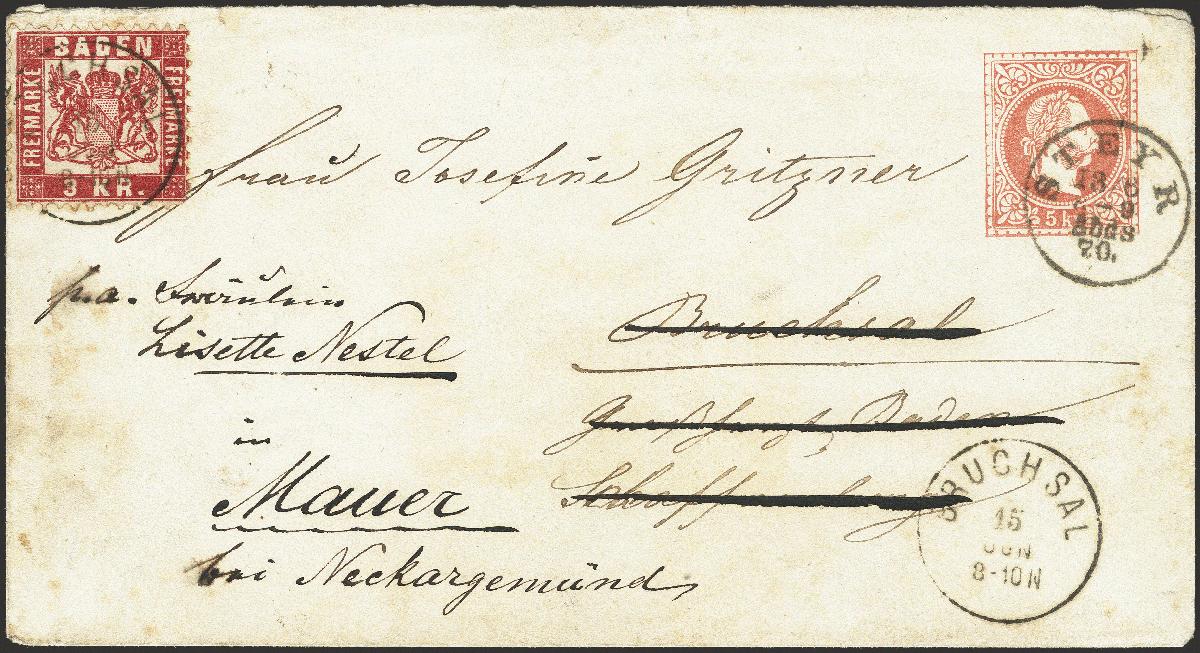 BADEN
FREIMARKE
FREIMARKE
3 KR.
5 kr
STEYR
13 6
Abds
70.
Frau Josefine Gritzner
p.a. Fräulein
Lisette Nestel
in
Mauer
bei Neckargemünd
Bruchsal
Baden
BRUCHSAL
15
JUN
8-10N